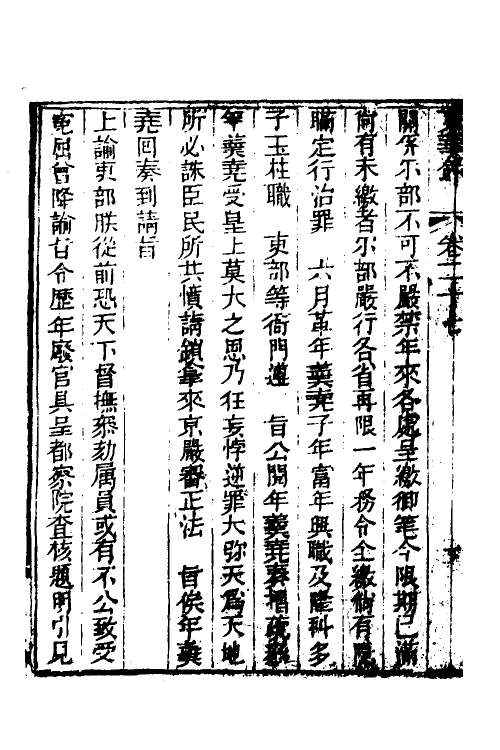 東華錄　卷二十七
關係尔部不可不嚴禁年來各處呈繳御筆今限期已滿
尚有未繳者尔部嚴行各省再限一年務令全繳倘有隱
瞞定行治罪　六月革年羹堯子年富年興職及隆科多
子玉柱職　吏部等衙門遵　旨公閱年羹堯摺疏
年羹堯受皇上莫大之恩乃狂妄悖逆罪大弥天爲天地
所必誅臣民所共憤請鎖拿來京嚴審正法　旨俟年羹
堯回奏到請旨
上諭吏部朕從前恐天下督撫叅劾属員或有不公致受
寃屈曾降諭旨令歷年廢官具呈都察院查核題明引見